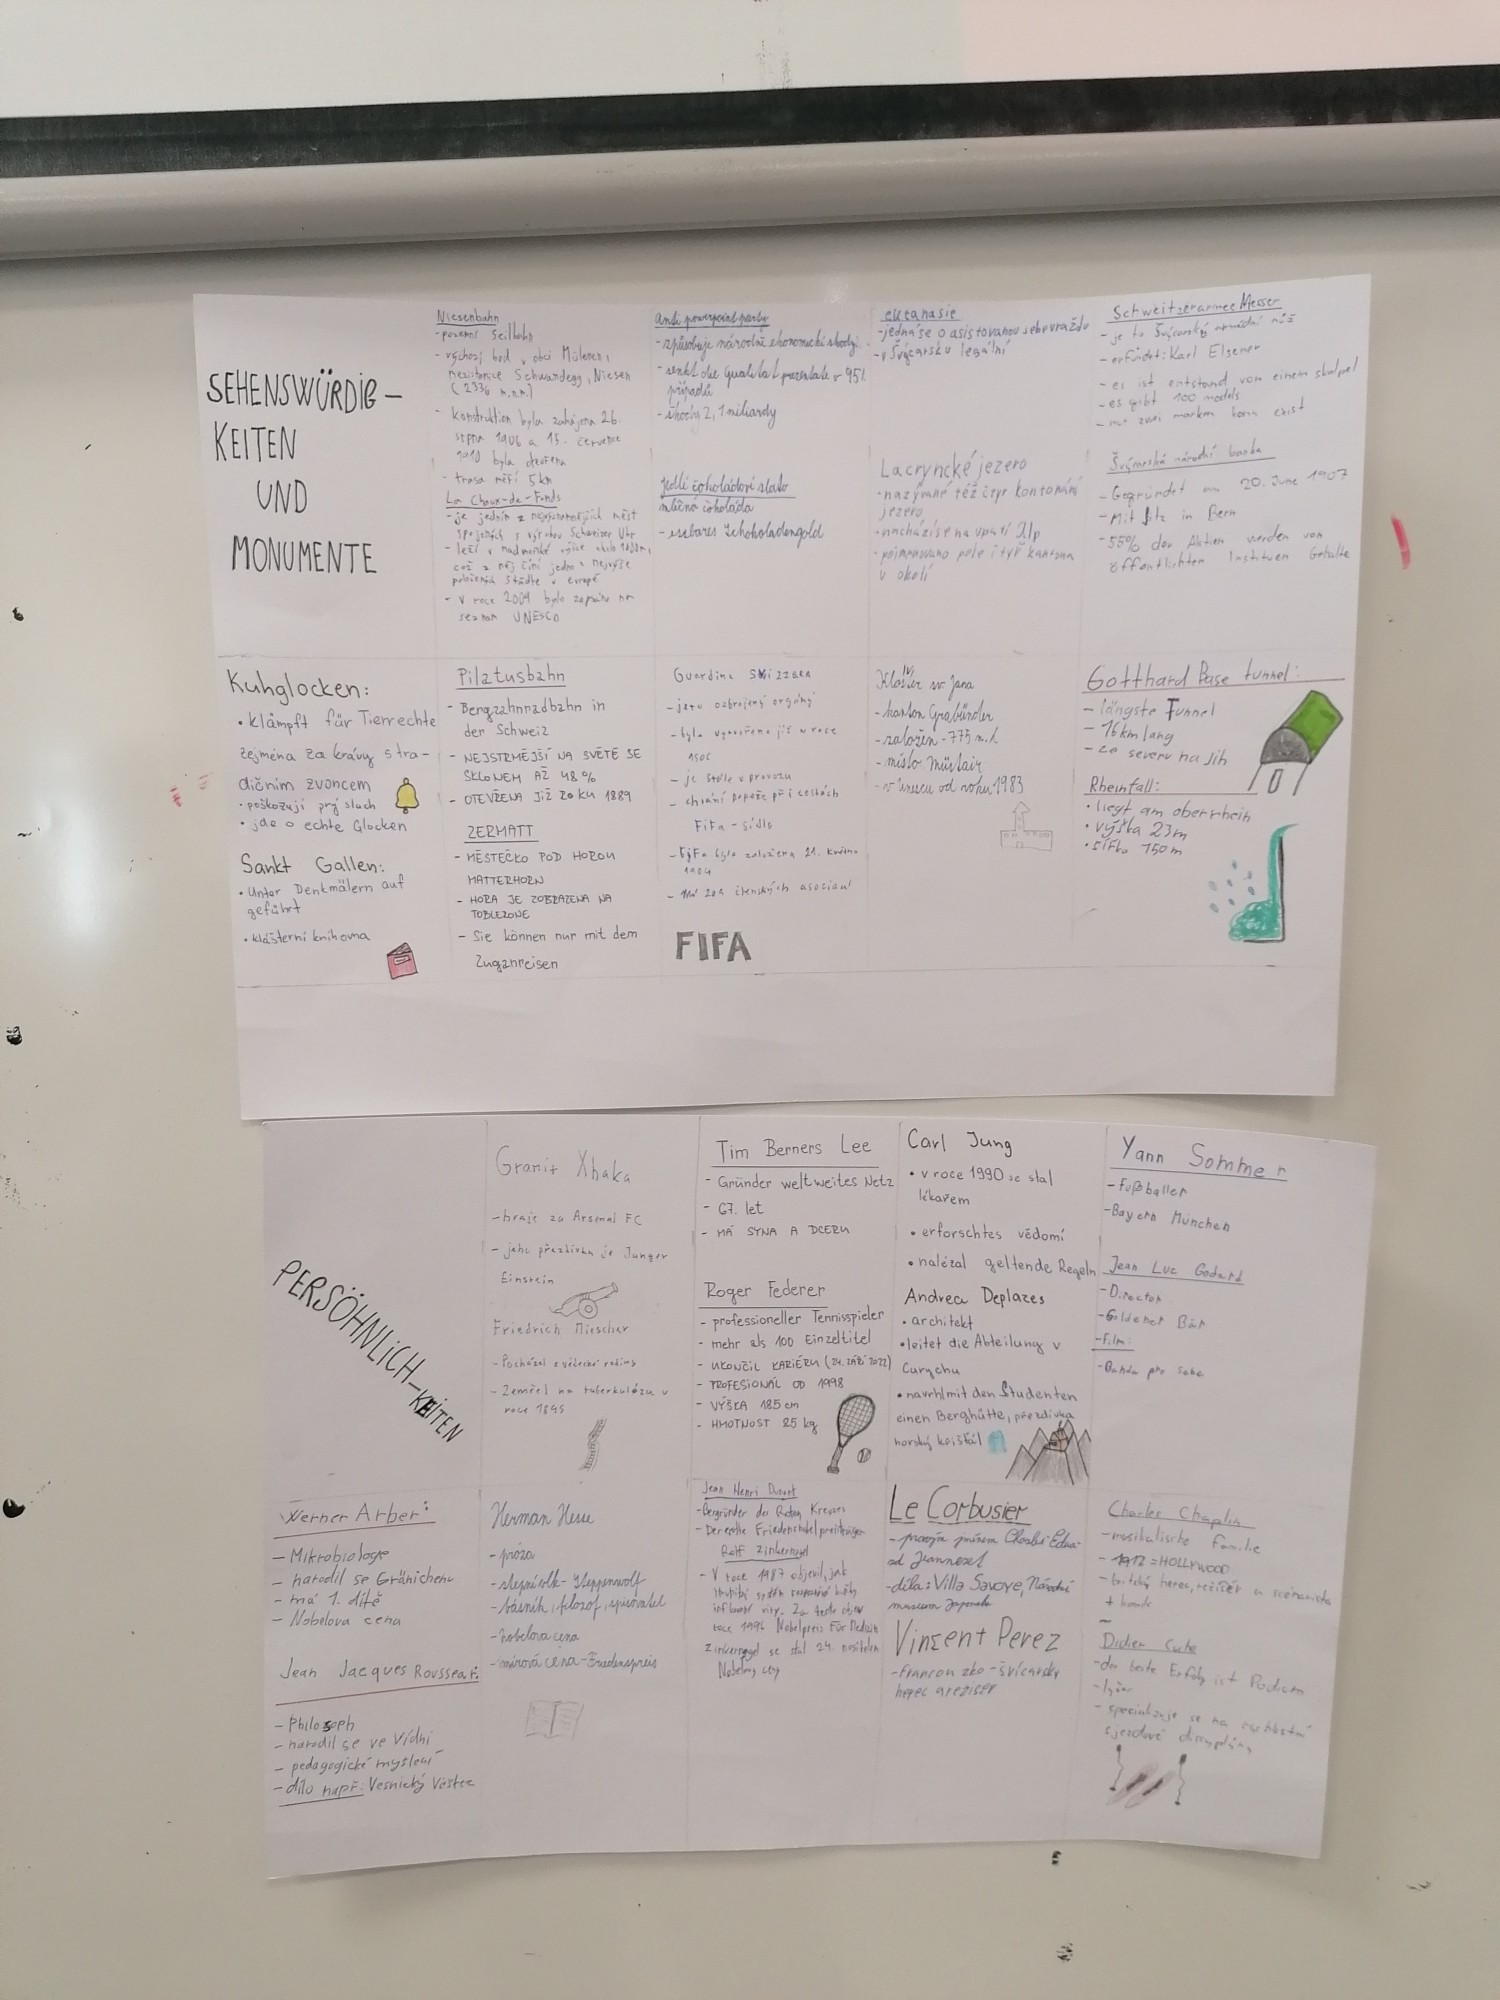 SEHENSWÜRDIG-
KEITEN
UND
MONUMENTE
Niesenbahn
- pozemní Seilbahn
- výchozí bod v obci Mülenen,
mezistanice Schwandegg, Niesen
(2336 m.n.m.)
- konstrukce byla zahájena 26.
srpna 1906 a 15. července
1910 byla otevřena
- trasa měří 5 km
La Chaux-de-Fonds
- je jedním z nejvýznamnějších měst
spojených s výrobou Schweizer Uhr
- leží v nadmořské výšce okolo 1000m,
což z něj činí jedno z nejvýše
položených Städte v evropě
- v roce 2009 bylo zapsáno na
seznam UNESCO
Anti powerpoint party
- způsobuje národně ekonomické škody
- senkt die Qualität prezentace v 95%
případů
- škody 2,1 miliardy
jedlé čokoládové zlato
mléčná čokoláda
- essbares Schokoladengold
eutanasie
- jedná se o asistovanou sebevraždu
- v Švýcarsku legální
Lacryncké jezero
- nazývané též čtyř kontonání
jezero
- nacházíse na úpatí Alp
- pojmenováno pole čtyř kantonů
v okolí
Schweitzerarmee Messer
- je to Švýcarský armádní nůž
- erfündet: Karl Elsener
- es ist entstand von einem skalpel
- es gibt 100 models
- nur zwei marken kann exist
Švýcarská národní banka
- Gegründet am 20. June 1907
- Mit Sitz in Bern
- 55% der Aktien werden von
öffentlichten Instituen Gehalte
Kuhglocken:
• klämpft für Tierrechte
zejména za krávy s tra-
dičním zvoncem
• poškozují prý sluch
• jde o echte Glocken
Sankt Gallen:
• Unter Denkmälern auf
geführt
• klášterní knihovna
Pilatusbahn
- Bergzahnradbahn in
der Schweiz
- NEJSTRMĚJŠÍ NA SVĚTĚ SE
SKLONEM AŽ 48 %
- OTEVŘENA JIŽ ROKU 1889
ZERMATT
- MĚSTEČKO POD HOROU
MATTERHORN
- HORA JE ZOBRAZENA NA
TOBLERONE
- Sie können nur mit dem
Zuganreisen
Guardina SWIZZERA
- jsou ozbrojený orgány
- byla vytvořena již v roce
1506
- je stále v provozu
- chrání papeže při cestách
FIFA - sídlo
- FIFA byla založena 21. května
1904
- Má 209 členských asociací
FIFA
Klášter sv. Jana
- kanton Grabünder
- založen - 775 n.l.
- místo Müstair
- v Unescu od roku 1983
Gotthard Base tunnel:
- längste Tunnel
- 16km lang
- ze severu na Jih
Rheinfall:
• liegt am oberrhein
• výška 23m
• šířka 150m
PERSÖHNLICH-KEITEN
Granit Xhaka
- hraje za Arsenal FC
- jeho přezdívka je Junger
Einstein
Friedrich Miescher
- Pocházel z vědecké rodiny
- Zemřel na tuberkulózu v
roce 1895
Tim Berners Lee
- Gründer weltweites Netz
- 67. let
- MÁ SYNA A DCERU
Roger Federer
- professioneller Tennisspieler
- mehr als 100 Einzeltitel
- UKONČIL KARIÉRU (24. ZÁŘÍ 2022)
- PROFESIONÁL OD 1998
- VÝŠKA 185 cm
- HMOTNOST 85 kg
Carl Jung
• v roce 1990 se stal
lékařem
• erforschtes vědomí
• nalézal geltende Regeln
Andrea Deplazes
• architekt
• leitet die Abteilung v
Curychu
• navrhl mit den Studenten
einen Berghütte, přezdívka
horský krištál
Yann Sommer
- Fußballer
- Bayern München
Jean Luc Godard
- Director
- Goldener Bär
- Film:
- Banda pro sebe
Werner Arber:
- Mikrobiologe
- narodil se Gränichenu
- má 1. dítě
- Nobelova cena
Jean Jacques Rousseau:
- Philosoph
- narodil se ve Vídni
- pedagogické myšlení
- dílo např: Vesnický Věštec
Herman Hesse
- próza
- stepní vlk - Steppenwolf
- básník, filozof, spisovatel
- nobelova cena
- mírová cena - Friedenspreis
Jean Henri Dunant
- Bergründer der Roten Kreuzes
- Der erste Friedensnobelpreisträger
Rolf Zinkernagel
- V roce 1987 objevil, jak
imunitní systém rozpozná buňky
infikované viry. Za tento objev
roce 1996 Nobelpreis für Medizin
Zinkernagel se stal 24. nositelem
Nobelovy ceny
Le Corbusier
- pravým jménem Charles Édou-
ard Jeanneret
- díla: Villa Savoye, Národní
museum Japonsko
Vincent Perez
- francouzko - švícarský
herec a režisér
Charles Chaplin
- musikalische Familie
- 1912 = HOLLYWOOD
- britský herec, režisér a scénárista
+ komik
Didier Cuche
- der beste Erfolg ist Podium
- lyžař
- specializuje se na rychlostní
sjezdové disciplíny